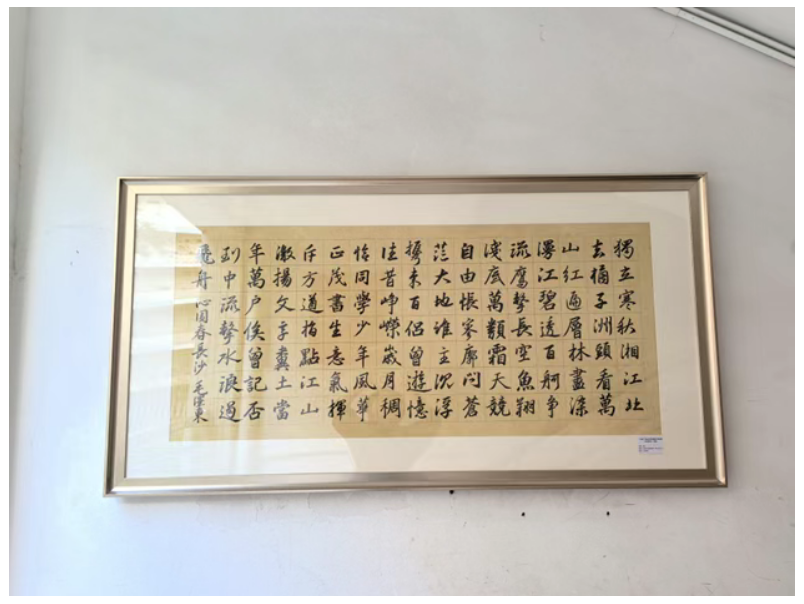 獨立寒秋湘江北
去橘子洲頭看萬
山紅遍層林盡染
漫江碧透百舸争
流鷹擊長空魚翔
淺底萬類霜天競
自由悵寥廓问蒼
茫大地谁主沉浮
攜来百侣曾遊憶
往昔崢嶸崴月稠
恰同學少年風華
正茂書生意氣揮
斥方遒指點江山
激揚文字糞土當
年萬户侯曾記否
到中流擊水浪遏
飛舟 沁园春長沙 毛澤東